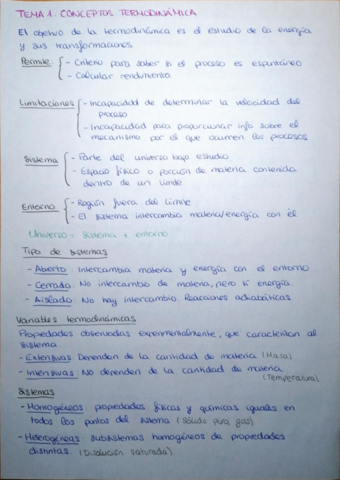 TEMA 1. CONCEPTOS TERMODINÁMICA
El objetivo de la termodinámica es el estudio de la energía
y sus transformaciones
Permite - Criterio para saber si el proceso es espontáneo
- Calcular rendimento.
Limitaciones - Incapacidad de determinar la velocidad del
proceso
- Incapacidad para proporcionar info sobre el
mecanismo por el que ocurren los procesos
Sistema - Parte del universo bajo estudio
- Espacio físico o porción de materia contenida
dentro de un límite
Entorno - Región fuera del límite
- El sistema intercambia materia/energía con él
Universo = sistema + entorno
Tipo de sistemas
- Abierto Intercambia materia y energía con el entorno
- Cerrado No intercambio de materia, pero sí energía.
- Aislado No hay intercambio. Reacciones adiabáticas
Variables termodinámicas
Propiedades observadas experimentalmente, que caracterizan al
sistema.
- Extensivas Dependen de la cantidad de materia (Masa)
- Intensivas No dependen de la cantidad de materia
(Temperatura)
Sistemas
- Homogéneos propiedades físicas y químicas iguales en
todos los puntos del sistema (Sólido puro, gas)
- Heterogéneas subsistemas homogéneos de propiedades
distintas (Disolución saturada)